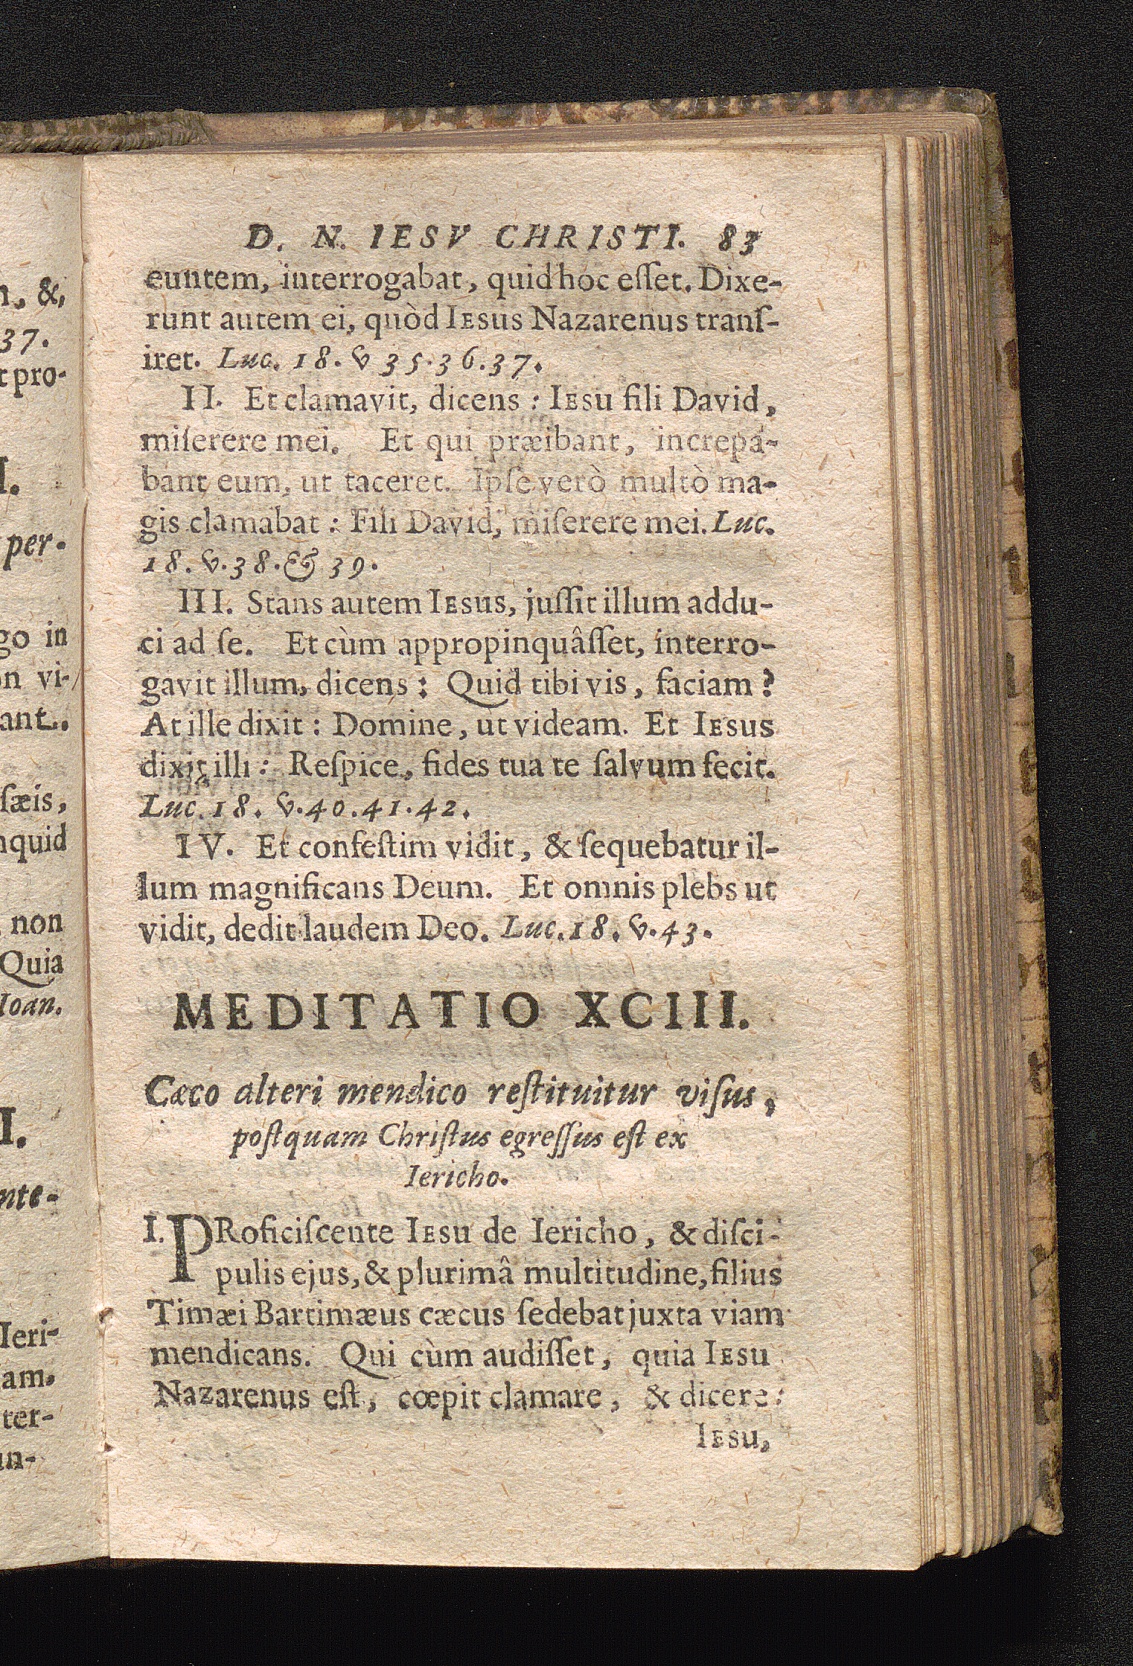 D. N. IESV CHRISTI. 83
euntem, interrogabat, quid hoc eſſet. Dixe-
runt autem ei, quòd IESUS Nazarenus tranſ-
iret. Luc. 18. v 35.36.37.
II. Et clamavit, dicens : IESU fili David,
miſerere mei. Et qui præibant, increpa-
bant eum, ut taceret. Ipſe verò multò ma-
gis clamabat : Fili David, miſerere mei. Luc.
18. v. 38. & 39.
III. Stans autem IESUS, juſſit illum addu-
ci ad ſe. Et cùm appropinquâſſet, interro-
gavit illum, dicens : Quid tibi vis, faciam ?
At ille dixit : Domine, ut videam. Et IESUS
dixit illi : Reſpice, fides tua te ſalvum fecit.
Luc. 18. v. 40. 41. 42.
IV. Et confeſtim vidit, & ſequebatur il-
lum magnificans Deum. Et omnis plebs ut
vidit, dedit laudem Deo. Luc. 18. v. 43.
MEDITATIO XCIII.
Cæco alteri mendico reſtituitur viſus,
poſtquam Chriſtus egreſſus eſt ex
Iericho.
I. PRoficiſcente IESU de Iericho, & diſci-
pulis ejus, & plurimâ multitudine, filius
Timæi Bartimæus cæcus ſedebat juxta viam
mendicans. Qui cùm audiſſet, quia IESU
Nazarenus eſt, cœpit clamare, & dicere:
IESU,
n, &,
37.
t pro-
I.
per-
go in
n vi-
ant.
ſæis,
nquid
non
Quia
Ioan.
I.
nte-
Ieri-
am,
ter-
un-